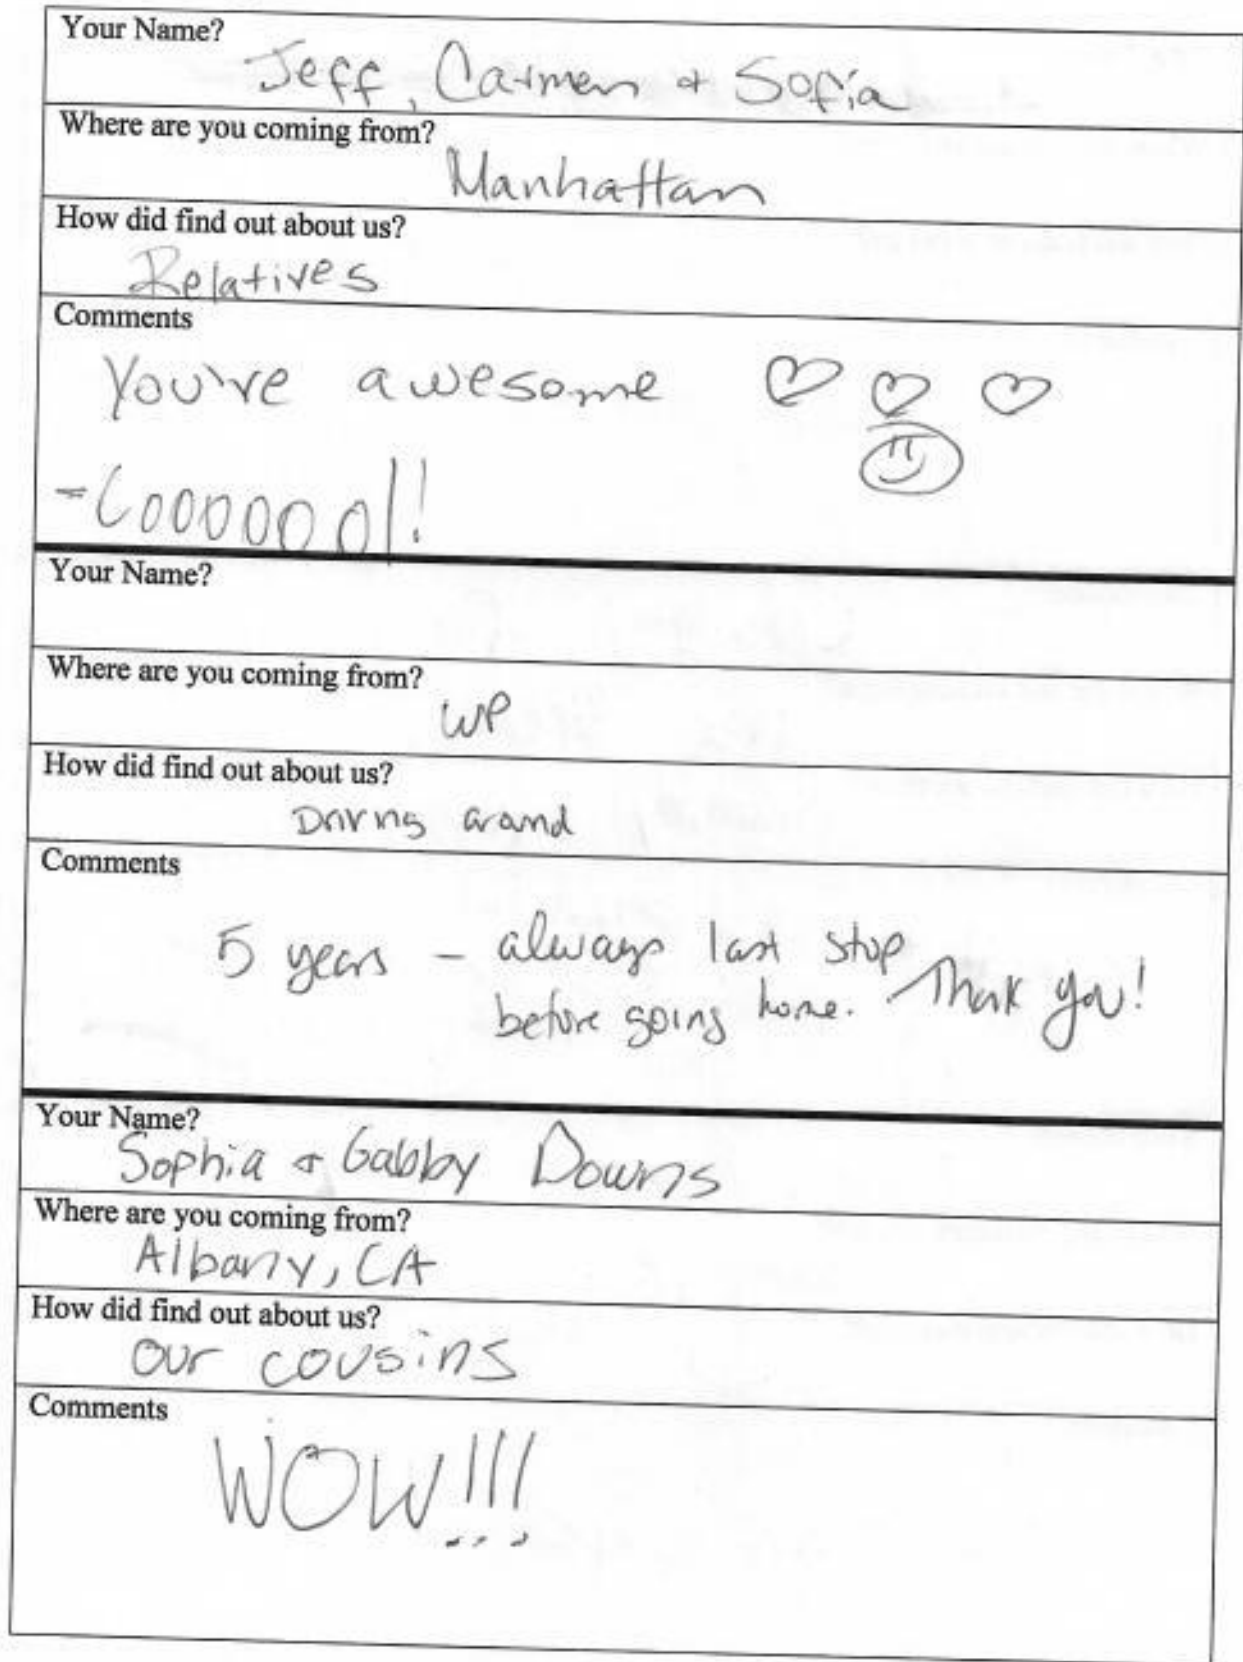 Your Name?
Jeff, Carmen + Sofia
Where are you coming from?
Manhattan
How did find out about us?
Relatives
Comments
You're awesome ♡ ♡ ♡
-Coooooool!
Your Name?
Where are you coming from?
WP
How did find out about us?
Driving around
Comments
5 years - always last stop
before going home. Thank you!
Your Name?
Sophia + Gabby Downs
Where are you coming from?
Albany, CA
How did find out about us?
our cousins
Comments
WOW!!!